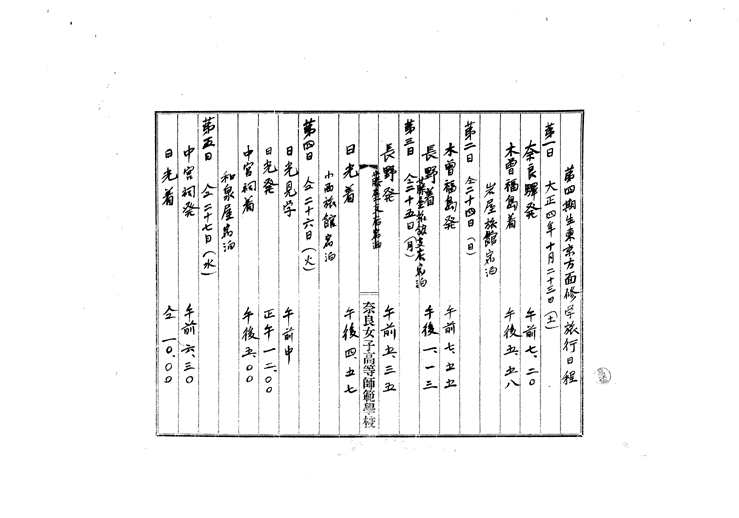 第四期生東京方面修学旅行日程
第一日 大正四年十月二十三日(土)
奈良駅発 午前七、二〇
木曽福島着 午後五、五八
岩屋旅館宿泊
第二日 仝二十四日(日)
木曽福島発 午前七、五五
長野着 午後一、一三
藤屋旅館支店宿泊
第三日 仝二十五日(月)
長野発 午前五、三五
奈良女子高等師範學校
日光着 午後四、五七
小西旅館宿泊
第四日 仝二十六日(火)
日光見学 午前中
日光発 正午一二、〇〇
中宮祠着 午後五、〇〇
和泉屋宿泊
第五日 仝二十七日(水)
中宮祠発 午前六、三〇
日光着 仝一〇、〇〇